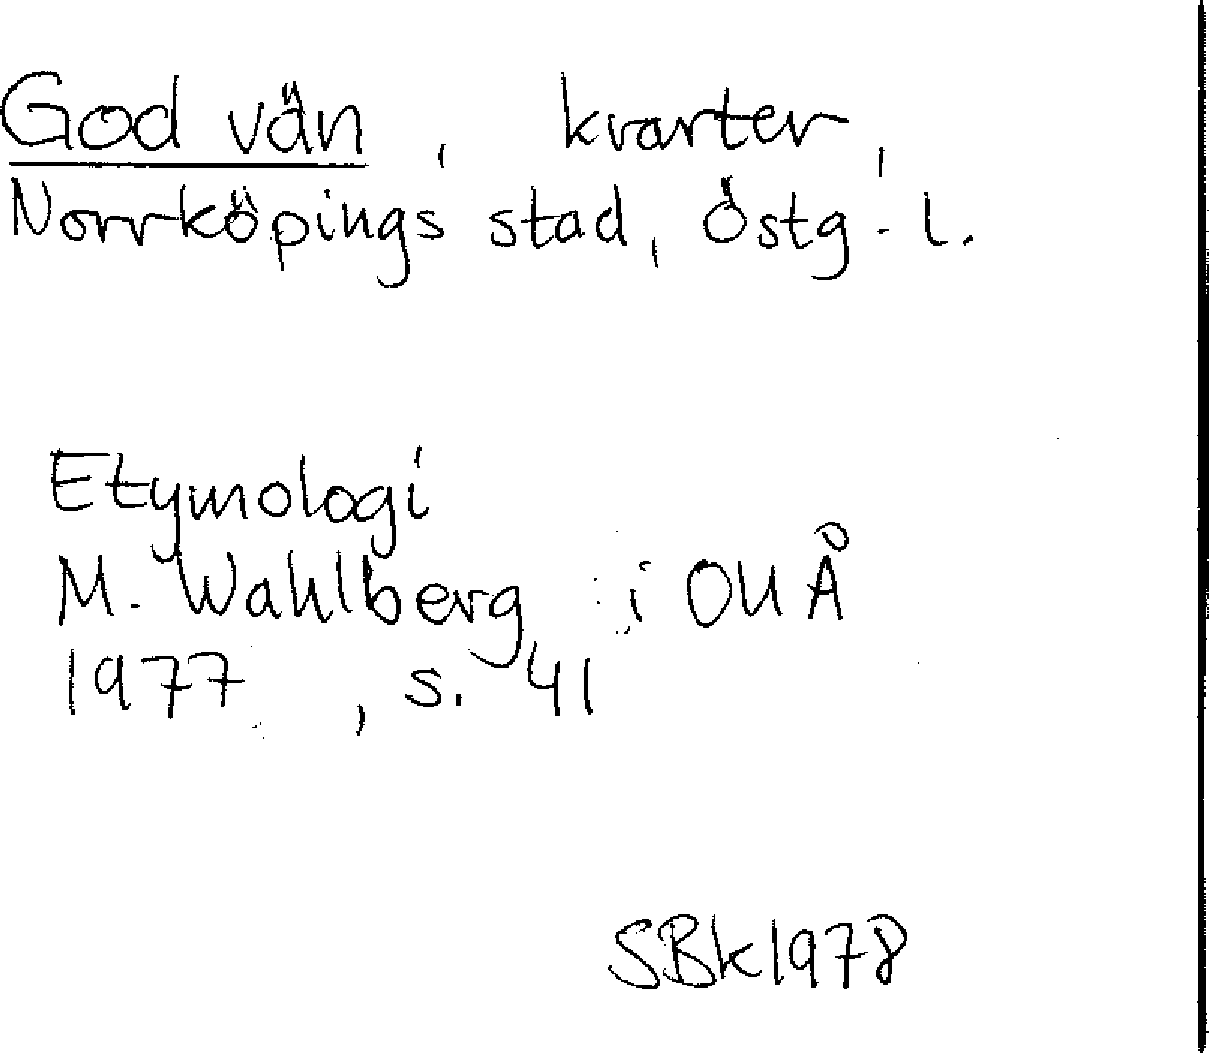 God vän, kvarter,
Norrköpings stad, Östg. l.
Etymologi
M. Wahlberg i OUÅ
1977, s. 41
SBk1978